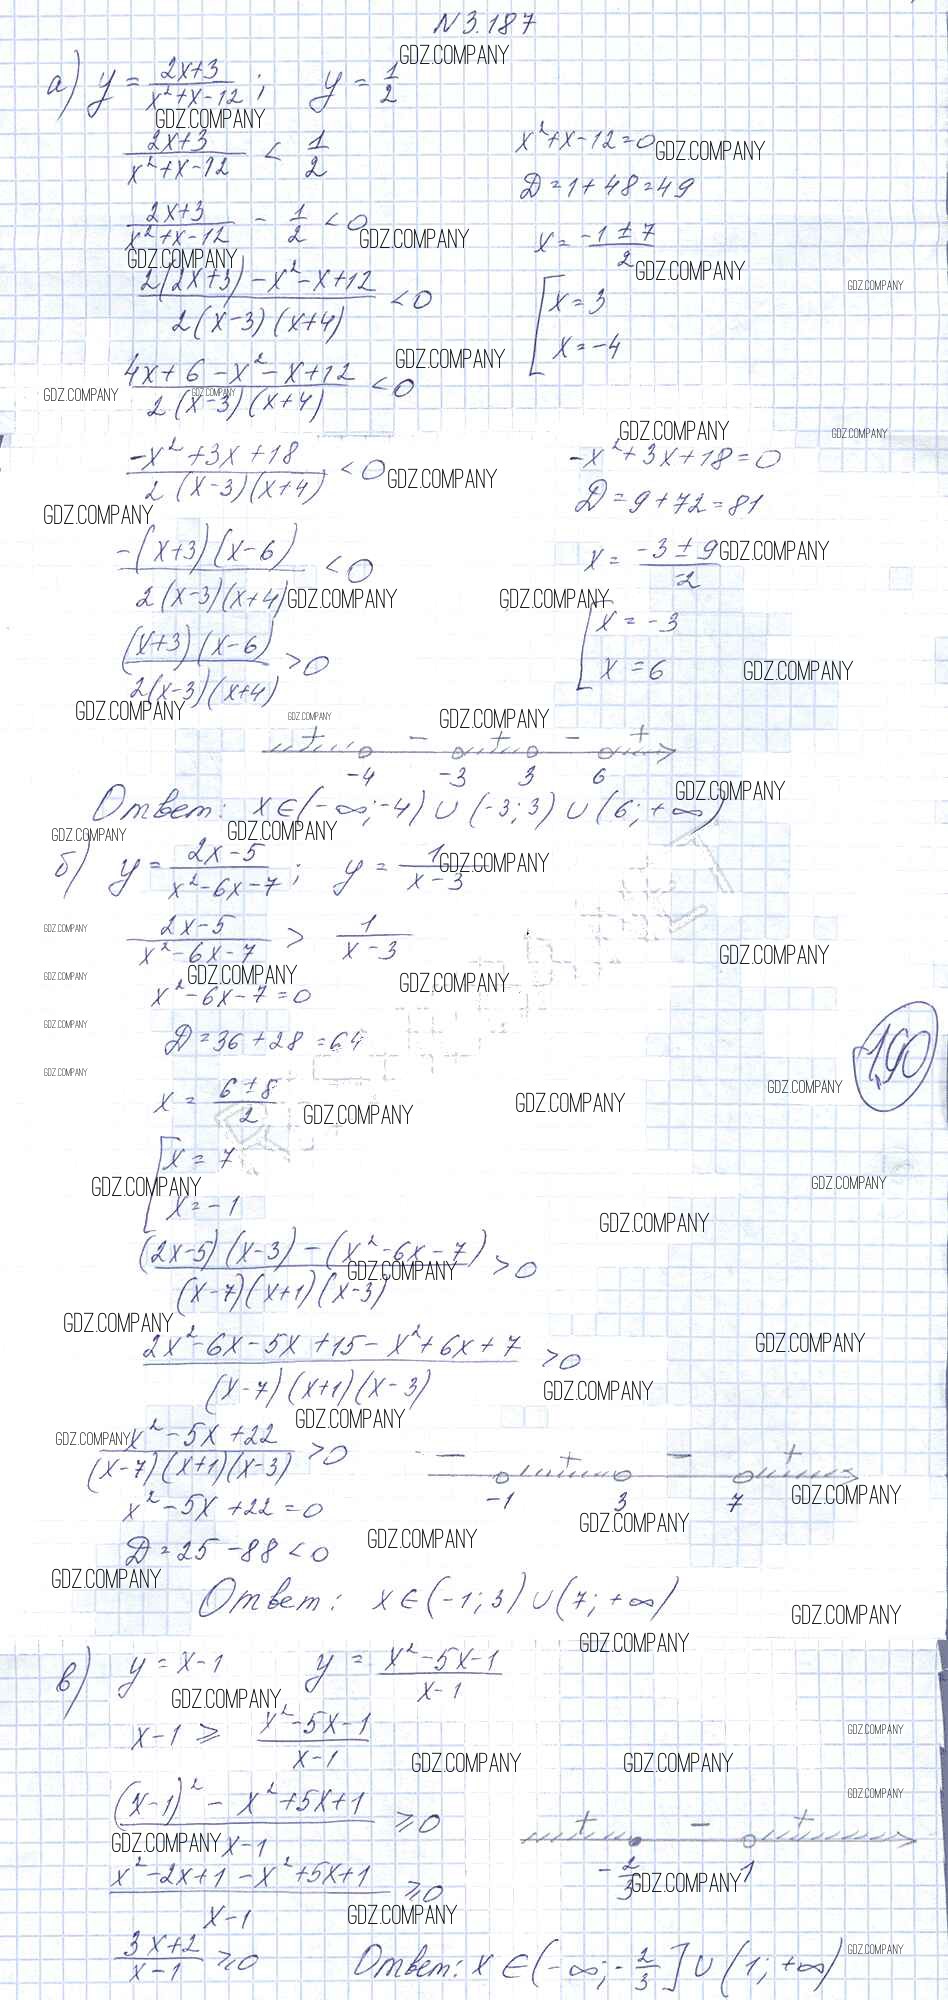 N 3.187
GDZ.COMPANY
а) y = (2x+3)/(x²+x-12); y = 1/2
GDZ.COMPANY
(2x+3)/(x²+x-12) < 1/2
x²+x-12=0
GDZ.COMPANY
Д=1+48=49
(2x+3)/(x²+x-12) - 1/2 < 0
GDZ.COMPANY
x = (-1±7)/2
GDZ.COMPANY
GDZ.COMPANY
(2(2x+3)-x²-x+12)/(2(x-3)(x+4)) < 0
GDZ.COMPANY
[x=3
x=-4
GDZ.COMPANY
(4x+6-x²-x+12)/(2(x-3)(x+4)) < 0
GDZ.COMPANY
GDZ.COMPANY
GDZ.COMPANY
GDZ.COMPANY
(-x²+3x+18)/(2(x-3)(x+4)) < 0
GDZ.COMPANY
-x²+3x+18=0
Д=9+72=81
GDZ.COMPANY
(-(x+3)(x-6))/(2(x-3)(x+4)) < 0
x = (-3±9)/-2
GDZ.COMPANY
GDZ.COMPANY
GDZ.COMPANY
[x=-3
x=6
GDZ.COMPANY
((x+3)(x-6))/(2(x-3)(x+4)) > 0
GDZ.COMPANY
GDZ.COMPANY
GDZ.COMPANY
+ - + - +
-4 -3 3 6
GDZ.COMPANY
Ответ: x∈(-∞;-4)∪(-3;3)∪(6;+∞)
GDZ.COMPANY
GDZ.COMPANY
б) y = (2x-5)/(x²-6x-7); y = 1/(x-3)
GDZ.COMPANY
GDZ.COMPANY
(2x-5)/(x²-6x-7) > 1/(x-3)
GDZ.COMPANY
GDZ.COMPANY
GDZ.COMPANY
GDZ.COMPANY
x²-6x-7=0
GDZ.COMPANY
Д=36+28=64
190
GDZ.COMPANY
GDZ.COMPANY
x = (6±8)/2
GDZ.COMPANY
GDZ.COMPANY
[x=7
x=-1
GDZ.COMPANY
GDZ.COMPANY
GDZ.COMPANY
((2x-5)(x-3)-(x²-6x-7))/((x-7)(x+1)(x-3)) > 0
GDZ.COMPANY
GDZ.COMPANY
(2x²-6x-5x+15-x²+6x+7)/((x-7)(x+1)(x-3)) > 0
GDZ.COMPANY
GDZ.COMPANY
GDZ.COMPANY
GDZ.COMPANY
(x²-5x+22)/((x-7)(x+1)(x-3)) > 0
- + - +
-1 3 7
GDZ.COMPANY
x²-5x+22=0
GDZ.COMPANY
Д=25-88<0
GDZ.COMPANY
GDZ.COMPANY
Ответ: x∈(-1;3)∪(7;+∞)
GDZ.COMPANY
GDZ.COMPANY
в) y=x-1 y = (x²-5x-1)/(x-1)
GDZ.COMPANY
x-1 ⩾ (x²-5x-1)/(x-1)
GDZ.COMPANY
GDZ.COMPANY
GDZ.COMPANY
GDZ.COMPANY
((x-1)²-x²+5x+1)/(x-1) ⩾ 0
GDZ.COMPANY
+ - +
-2/3 1
GDZ.COMPANY
(x²-2x+1-x²+5x+1)/(x-1) ⩾ 0
GDZ.COMPANY
(3x+2)/(x-1) ⩾ 0
GDZ.COMPANY
Ответ: x∈(-∞;-2/3]∪(1;+∞)